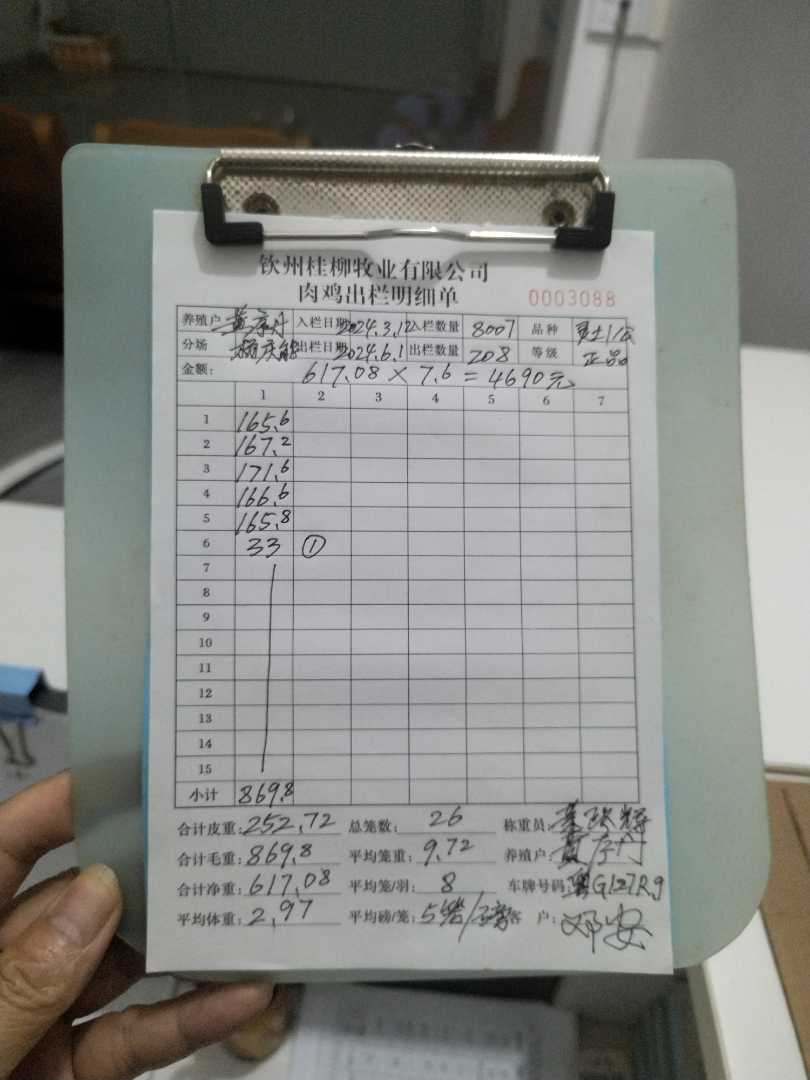 钦州桂柳牧业有限公司
肉鸡出栏明细单 0003088
养殖户 入栏日期 2024.3.12 入栏数量 8007 品种
分场 出栏日期 2024.6.1 出栏数量 208 等级 正品
金额: 617.08 × 7.6 = 4690元
1 2 3 4 5 6 7
1 165.6
2 167.2
3 171.6
4 166.6
5 165.8
6 33 ①
7
8
9
10
11
12
13
14
15
小计 869.8
合计皮重: 252.72 总笼数: 26 称重员:
合计毛重: 869.8 平均笼重: 9.72 养殖户:
合计净重: 617.08 平均笼/羽: 8 车牌号码: 粤G127R9
平均体重: 2.97 平均磅/笼: 5笼/磅 客 户: 邓安